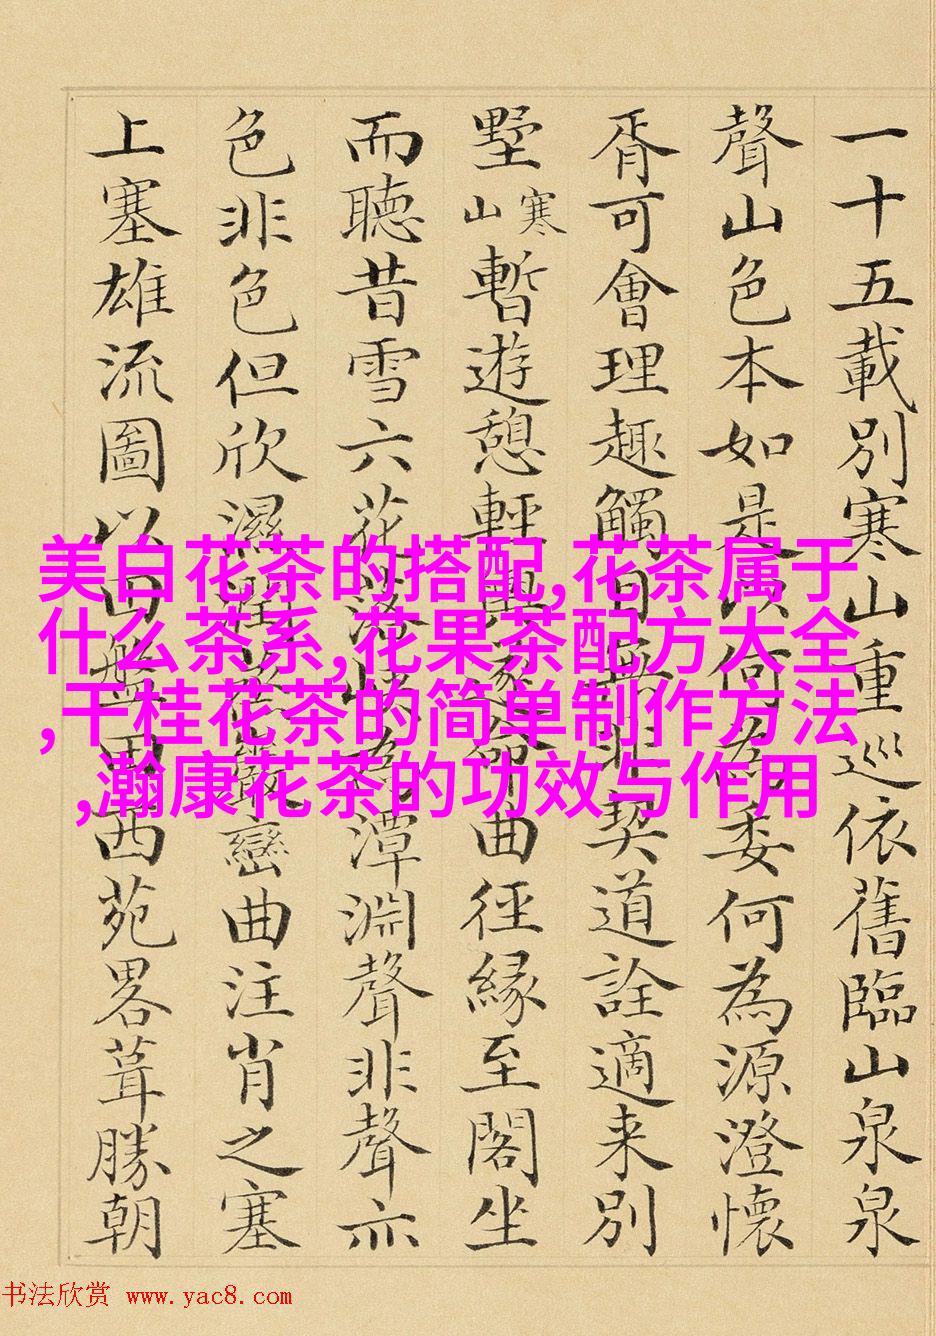 一十五載別寒山重巡依舊臨山泉泉
聲山色本如是以何為委何為源澄懷
胥可會理趣觸目無非契道詮適来別
墅寒山暫遊憩輕輿命曲徑緣至閣坐
而聽昔雪六花落為潭淵聲非聲亦
色非色但欣濕潤巖巒曲注肖之塞
上塞雄流圖以盤西苑畧葺勝朝
美白花茶的搭配,花茶属于
什么茶系,花果茶配方大全
,干桂花茶的简单制作方法
,瀚康花茶的功效与作用
书法欣赏 www.yac8.com